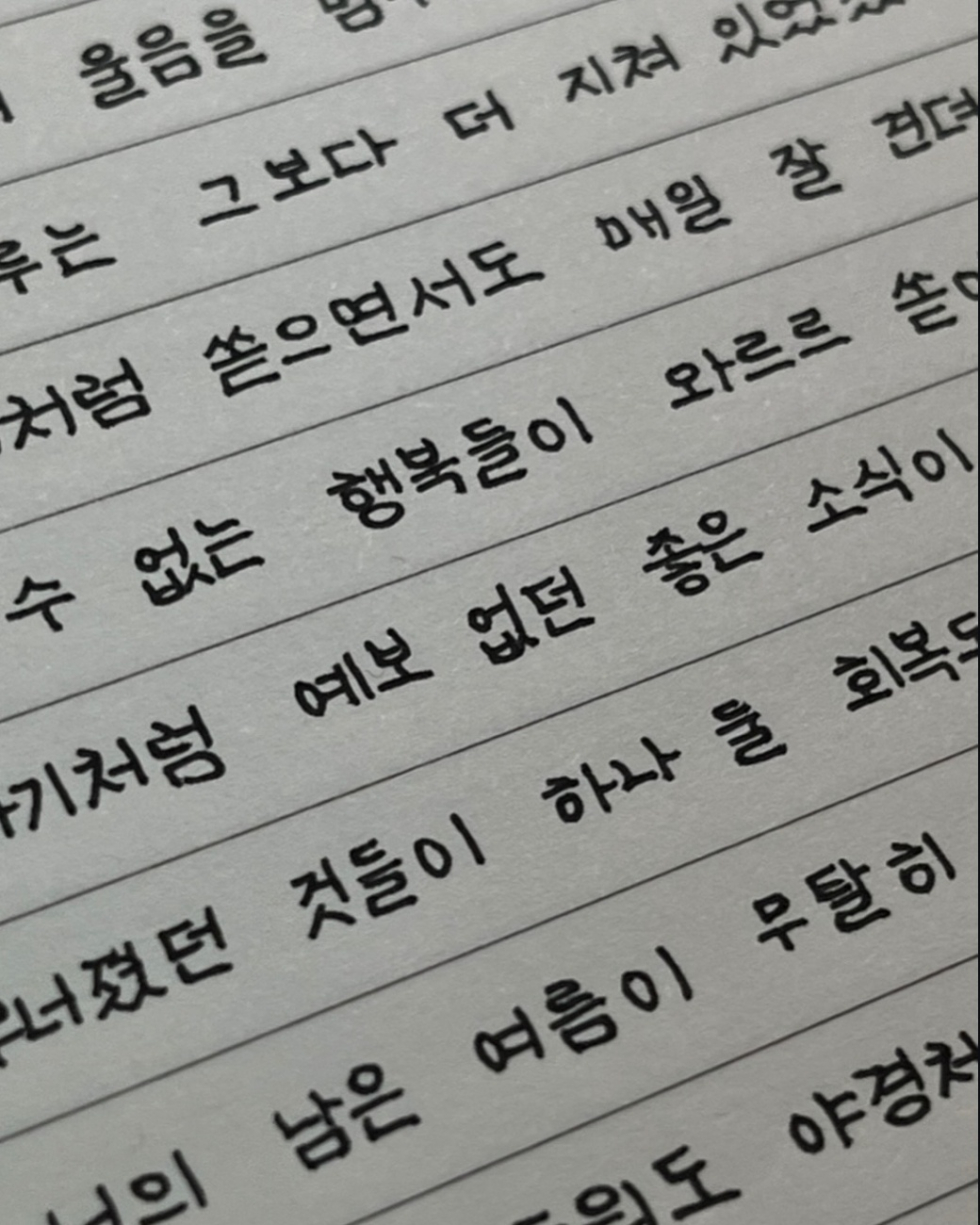 울음을
루는 그보다 더 지쳐 있었
처럼 쏟으면서도 매일 잘 견뎌
수 없는 행복들이 와르르 쏟
기처럼 예보 없던 좋은 소식이
너졌던 것들이 하나 둘 회복되
너의 남은 여름이 무탈히
원도 야경처